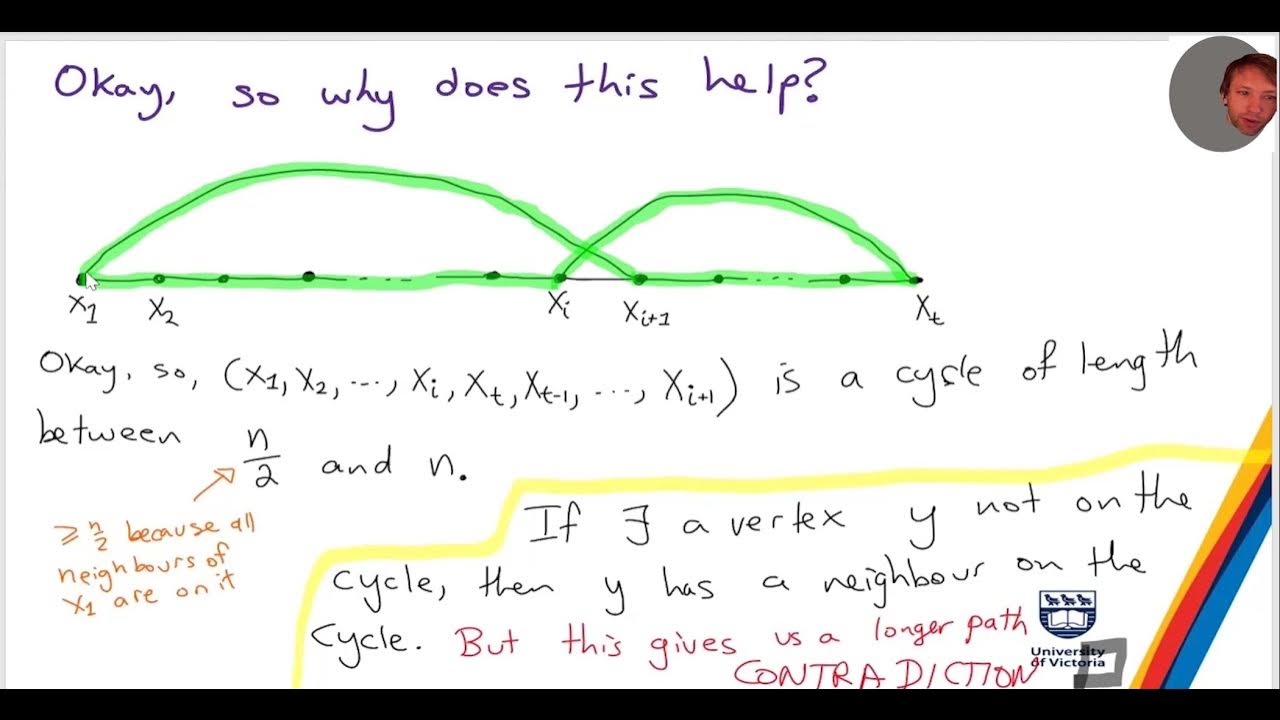 Okay, so why does this help?
x1 x2 xi xi+1 xt
Okay, so, (x1, x2, ..., xi, xt, xt-1, ..., xi+1) is a cycle of length
between n/2 and n.
≥ n/2 because all
neighbours of
x1 are on it
If ∃ a vertex y not on the
cycle, then y has a neighbour on the
cycle. But this gives us a longer path
CONTRADICTION
University
of Victoria